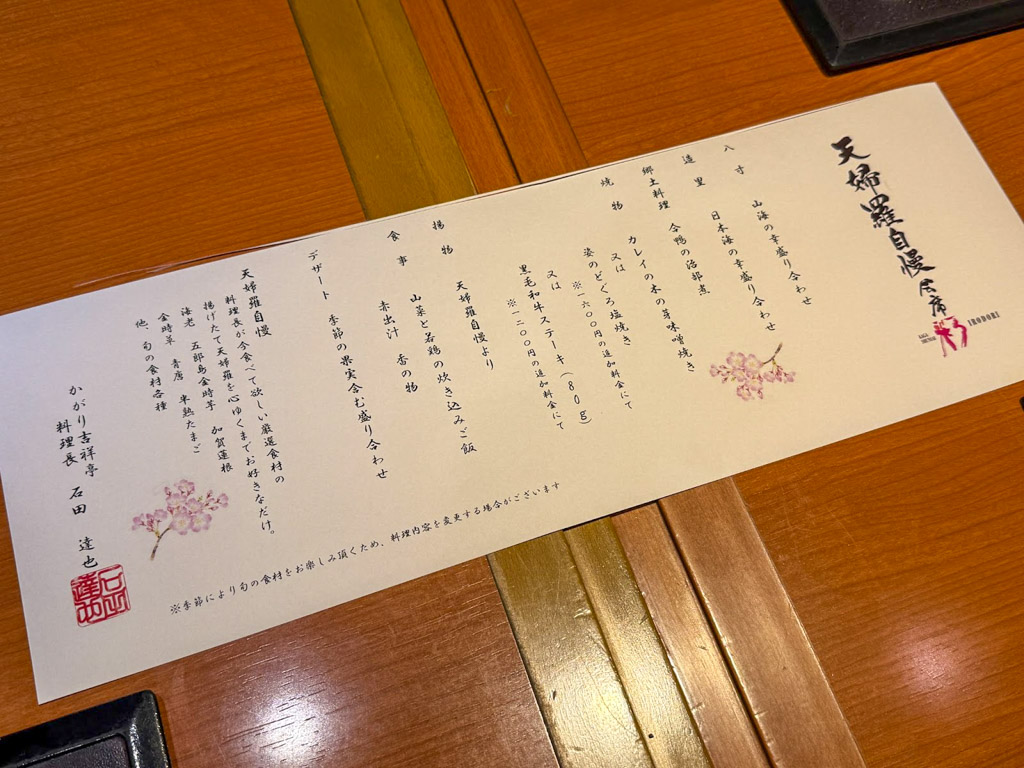 天婦羅自慢会席
彩
IRODORI
八寸
山海の幸盛り合わせ
造里
日本海の幸盛り合わせ
郷土料理
合鴨の治部煮
焼物
カレイの木の芽味噌焼き
又は
姿のどぐろ塩焼き
※一六〇〇円の追加料金にて
又は
黒毛和牛ステーキ(80g)
※一二〇〇円の追加料金にて
揚物
天婦羅自慢より
食事
山菜と若鶏の炊き込みご飯
赤出汁 香の物
デザート
季節の果実含む盛り合わせ
天婦羅自慢
料理長が今食べて欲しい厳選食材の
揚げたて天婦羅を心ゆくまでお好きなだけ。
海老 五郎島金時芋 加賀蓮根
金時草 青唐 半熟たまご
他、旬の食材各種
かがり吉祥亭
料理長 石田 達也
※季節により旬の食材をお楽しみ頂くため、料理内容を変更する場合がございます